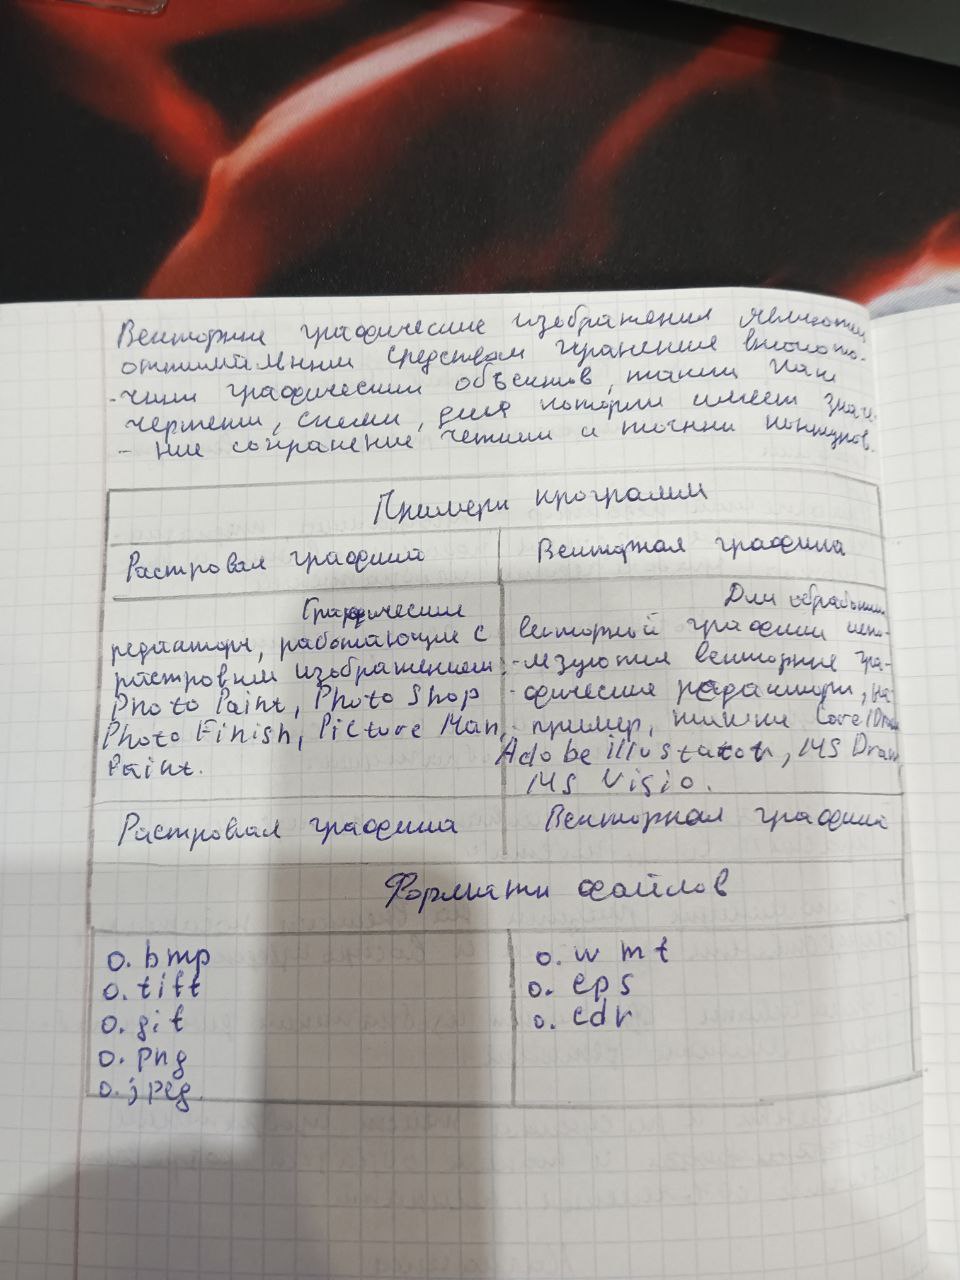 Векторные графические изображения являются
оптимальным средством хранения высокото-
-чных графических объектов, таких как
чертежи, схемы, для которых имеет значе-
- ние сохранение четких и точных контуров.
Примеры программ
Растровая графика
Векторная графика
Графические
редакторы, работающие с
растровым изображением:
Photo Paint, Photo Shop
Photo Finish, Picture Man,
Paint.
Для обработки
векторной графики испо-
-льзуются векторные гра-
-фические редакторы, на-
- пример, такие Corel Draw
Adobe illustrator, MS Draw
MS Visio.
Растровая графика
Векторная графика
Форматы файлов
o. bmp
o. tiff
o. gif
o. png
o. jpeg
o. wmf
o. eps
o. cdr